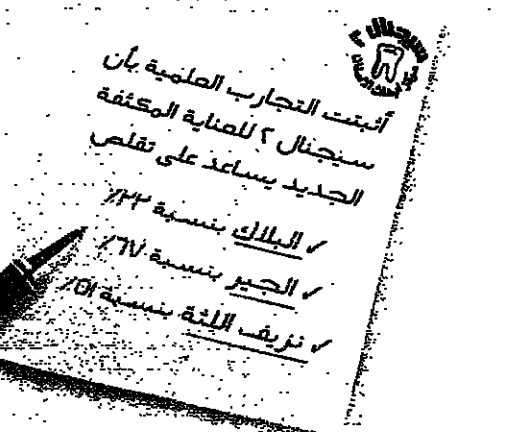 سيجنال ٢
أثبتت التجارب العلمية بأن
سيجنال ٢ للعناية المكثفة
الجديد يساعد على تقلص
✓ البلاك بنسبة ٢٢٪
✓ الجير بنسبة ٦٧٪
✓ نزيف اللثة بنسبة ٥١٪